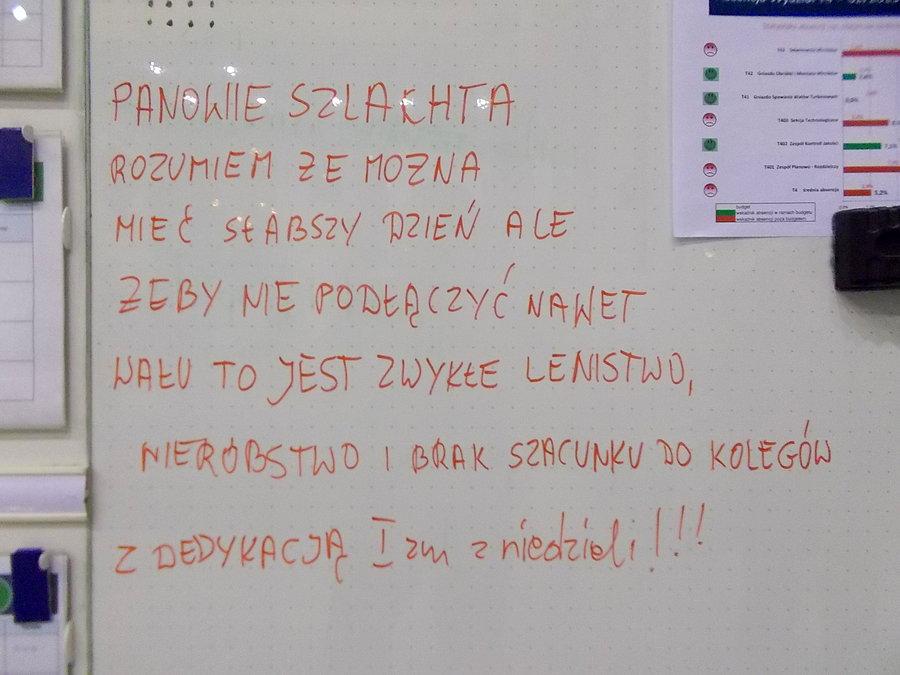 PANOWIE SZLACHTA
ROZUMIEM ŻE MOZNA
MIEĆ SŁABSZY DZIEŃ ALE
ŻEBY NIE PODŁĄCZYĆ NAWET
WAŁU TO JEST ZWYKŁE LENISTWO,
NIERÓBSTWO I BRAK SZACUNKU DO KOLEGÓW
Z DEDYKACJĄ I zm z niedzieli!!!
T42 Gniazdo Obróbki i Montażu Wirników
T41 Gniazdo Spawania Wałów Turbinowych
T403 Sekcja Technologiczna
T402 Zespół Kontroli Jakości
T401 Zespół Planowo - Rozdzielczy
T4 średnia absencja
5,2%
budget
wskaźnik absencji w ramach budgetu
wskaźnik absencji poza budgetem